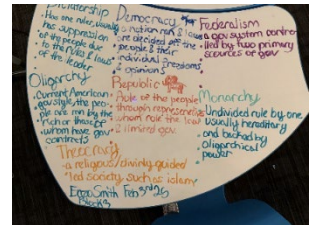 Dictatorship
Has one ruler, usually
has suppression
of the people due
to the rules & laws
of the leader
Democracy
a nation run & laws
are decided off the
people & their
individual freedoms
& opinions
Federalism
a gov system contro-
lled by two primary
sources of gov
Oligarchy
Current American
gov style, the peo-
ple are run by the
rich or those of
whom have gov
contracts
Republic
Rule of the people
through representative
whom role the law
& limited gov
Monarchy
Undivided rule by one
usually hereditary
and backed by
oligarchical
power
Theocracy
a religious/divinly guided
led society, such as islam
Enzo Smith Feb 3rd 25
Block 3